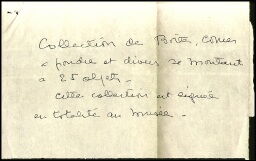 Collection de Boîtes, Cornes
à poudre et divers se montant
à 25 objets.
cette collection est léguée
en totalité au musée.